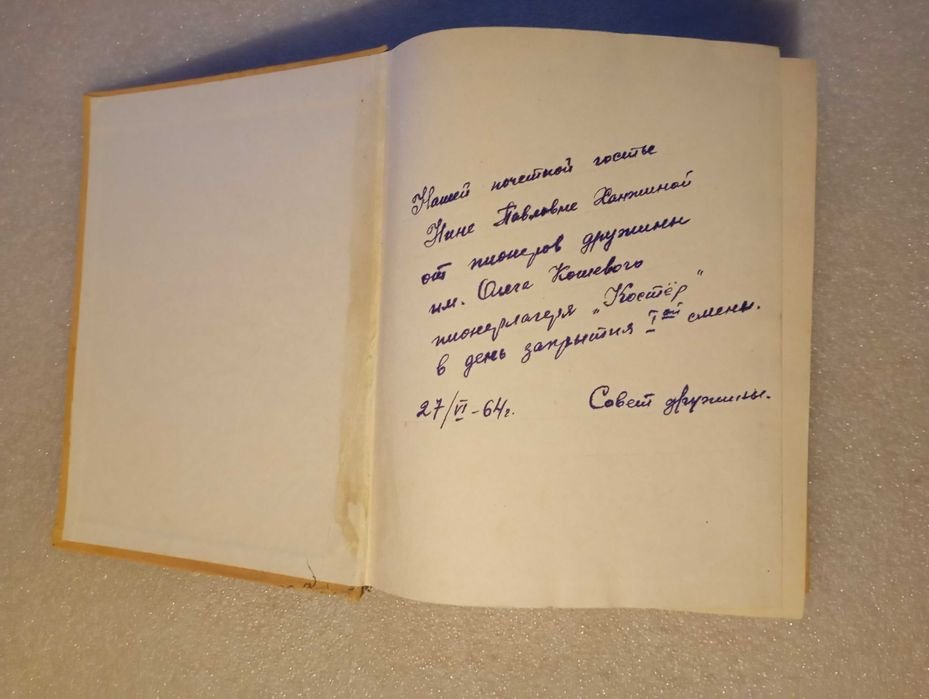 Нашей почетной гостье
Нине Павловне Ханжиной
от пионеров дружины
им. Олега Кошевого
пионерлагеря „Костёр"
в день закрытия Iой смены.
27/VI-64г. Совет дружины.